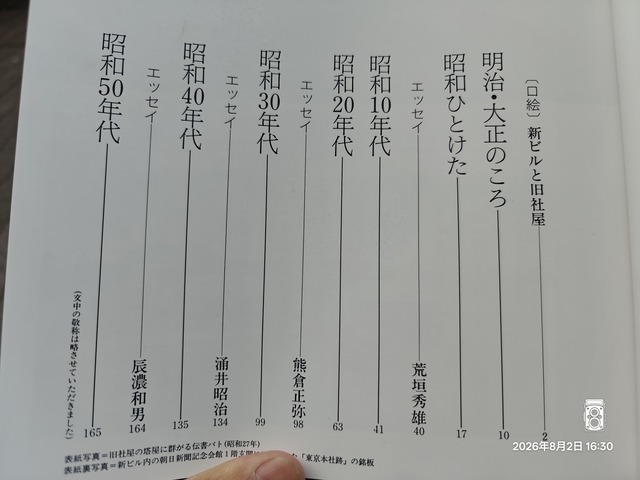 〔口絵〕新ビルと旧社屋 2
明治・大正のころ 10
昭和ひとけた 17
エッセイ 荒垣秀雄 40
昭和10年代 41
昭和20年代 63
エッセイ 熊倉正弥 98
昭和30年代 99
エッセイ 涌井昭治 134
昭和40年代 135
エッセイ 辰濃和男 164
昭和50年代 165
(文中の敬称は略させていただきました)
表紙写真=旧社屋の塔屋に群がる伝書バト(昭和27年)
表紙裏写真=新ビル内の朝日新聞記念会館1階玄関 た「東京本社跡」の銘板
2026年8月2日 16:30